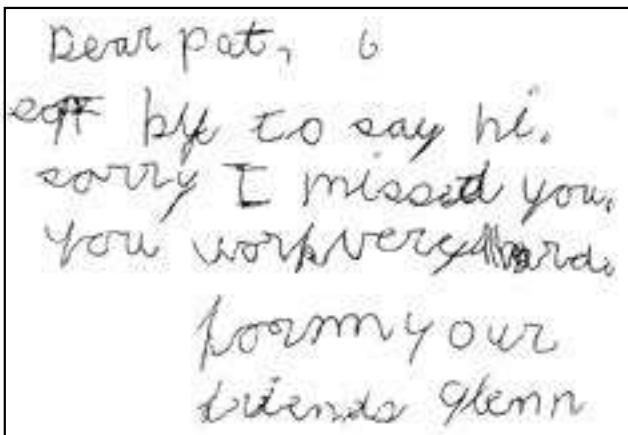 Dear Pat, 6
by to say hi.
sorry I missed you.
you work very hard.
form your
friends glenn